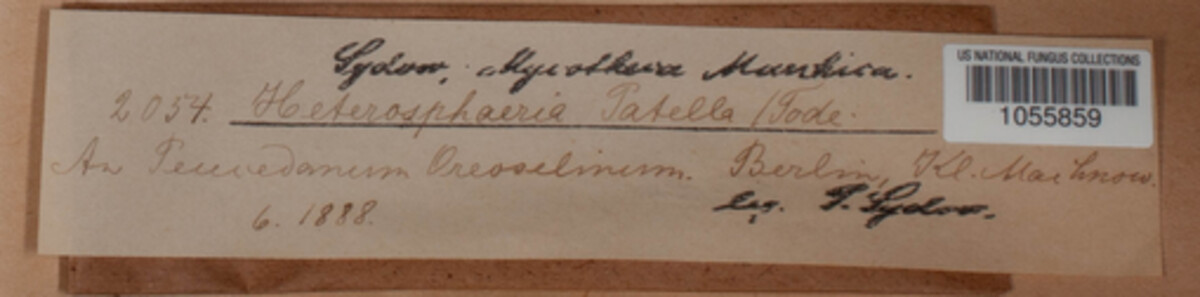 Sydow, Mycotheca Marchica.
US NATIONAL FUNGUS COLLECTIONS
1055859
2054. Heterosphaeria Patella (Tode.
An Peucedanum Oreoselinum. Berlin, Kl. Machnow.
6. 1888. leg. P. Sydow.